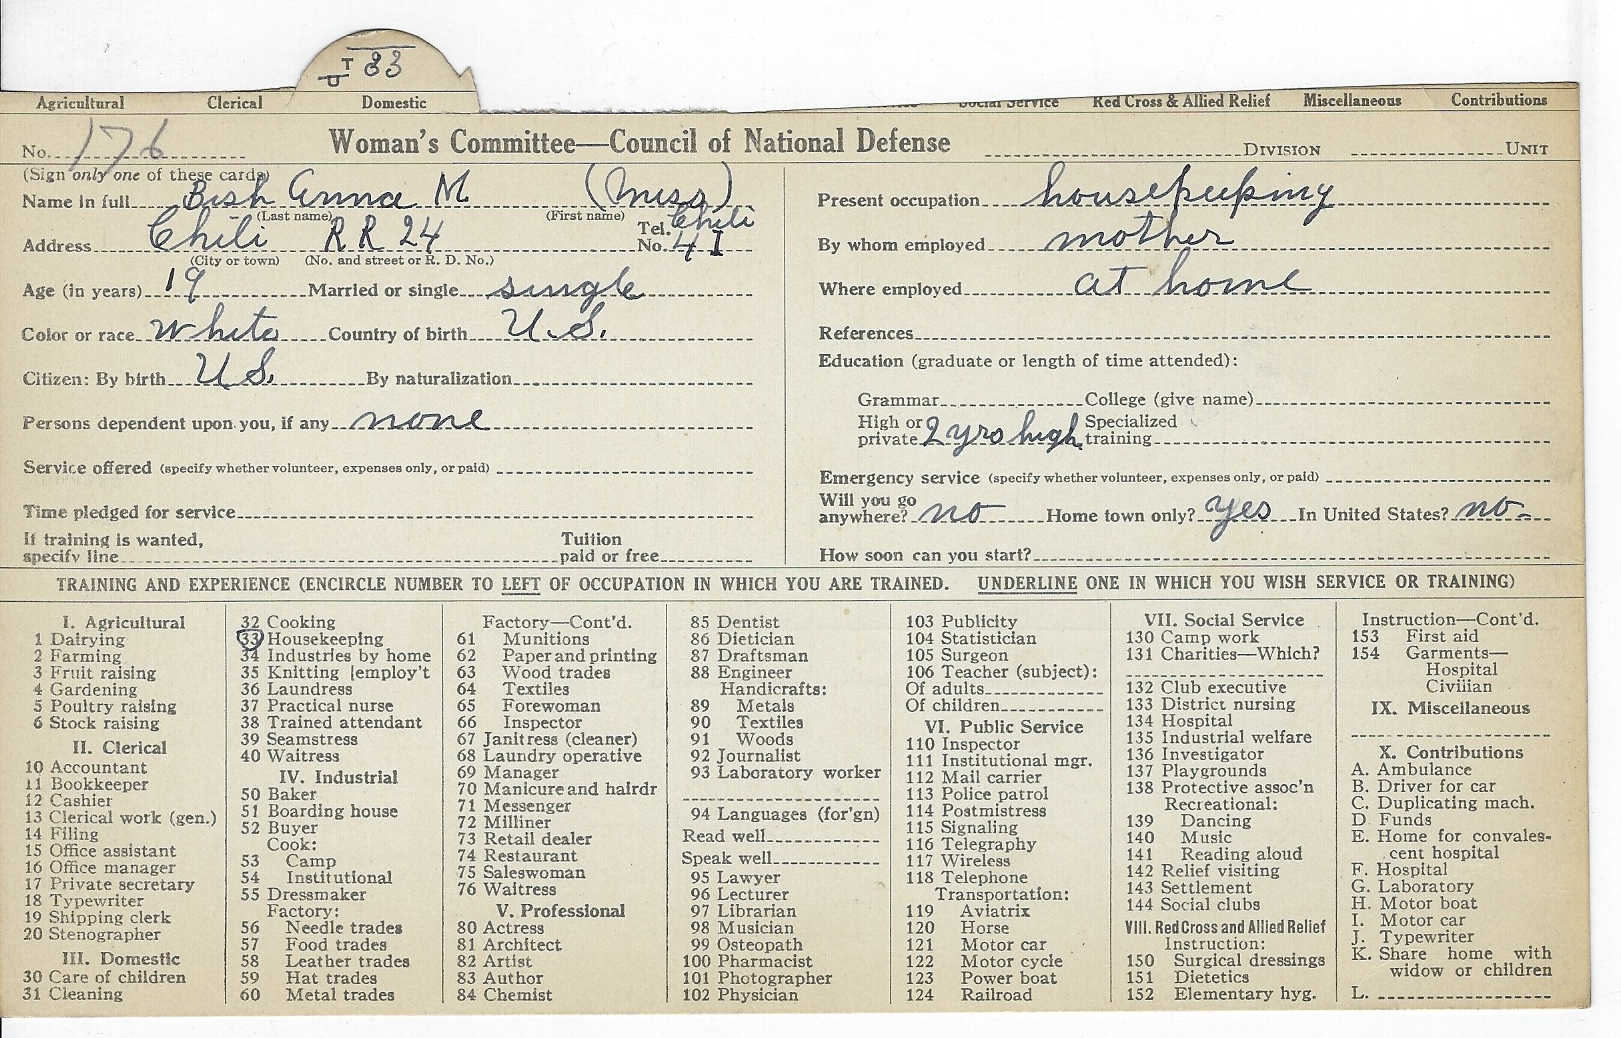 T 33
Agricultural Clerical Domestic Social Service Red Cross & Allied Relief Miscellaneous Contributions
No. 176 Woman's Committee—Council of National Defense DIVISION UNIT
(Sign only one of these cards)
Name in full Bish Anna M (Miss)
(Last name) (First name)
Address Chili RR 24 Tel. No. Chili 41
(City or town) (No. and street or R. D. No.)
Age (in years) 19 Married or single single
Color or race White Country of birth U.S.
Citizen: By birth U.S. By naturalization
Persons dependent upon you, if any none
Service offered (specify whether volunteer, expenses only, or paid)
Time pledged for service
If training is wanted, specify line Tuition paid or free
Present occupation housekeeping
By whom employed mother
Where employed at home
References
Education (graduate or length of time attended):
Grammar College (give name)
High or private 2 yrs high Specialized training
Emergency service (specify whether volunteer, expenses only, or paid)
Will you go anywhere? no Home town only? yes In United States? no
How soon can you start?
TRAINING AND EXPERIENCE (ENCIRCLE NUMBER TO LEFT OF OCCUPATION IN WHICH YOU ARE TRAINED. UNDERLINE ONE IN WHICH YOU WISH SERVICE OR TRAINING)
I. Agricultural
1 Dairying
2 Farming
3 Fruit raising
4 Gardening
5 Poultry raising
6 Stock raising
II. Clerical
10 Accountant
11 Bookkeeper
12 Cashier
13 Clerical work (gen.)
14 Filing
15 Office assistant
16 Office manager
17 Private secretary
18 Typewriter
19 Shipping clerk
20 Stenographer
III. Domestic
30 Care of children
31 Cleaning
32 Cooking
33 Housekeeping
34 Industries by home
35 Knitting [employ't
36 Laundress
37 Practical nurse
38 Trained attendant
39 Seamstress
40 Waitress
IV. Industrial
50 Baker
51 Boarding house
52 Buyer
Cook:
53 Camp
54 Institutional
55 Dressmaker
Factory:
56 Needle trades
57 Food trades
58 Leather trades
59 Hat trades
60 Metal trades
Factory—Cont'd.
61 Munitions
62 Paper and printing
63 Wood trades
64 Textiles
65 Forewoman
66 Inspector
67 Janitress (cleaner)
68 Laundry operative
69 Manager
70 Manicure and hairdr
71 Messenger
72 Milliner
73 Retail dealer
74 Restaurant
75 Saleswoman
76 Waitress
V. Professional
80 Actress
81 Architect
82 Artist
83 Author
84 Chemist
85 Dentist
86 Dietician
87 Draftsman
88 Engineer
Handicrafts:
89 Metals
90 Textiles
91 Woods
92 Journalist
93 Laboratory worker
94 Languages (for'gn)
Read well
Speak well
95 Lawyer
96 Lecturer
97 Librarian
98 Musician
99 Osteopath
100 Pharmacist
101 Photographer
102 Physician
103 Publicity
104 Statistician
105 Surgeon
106 Teacher (subject):
Of adults
Of children
VI. Public Service
110 Inspector
111 Institutional mgr.
112 Mail carrier
113 Police patrol
114 Postmistress
115 Signaling
116 Telegraphy
117 Wireless
118 Telephone
Transportation:
119 Aviatrix
120 Horse
121 Motor car
122 Motor cycle
123 Power boat
124 Railroad
VII. Social Service
130 Camp work
131 Charities—Which?
132 Club executive
133 District nursing
134 Hospital
135 Industrial welfare
136 Investigator
137 Playgrounds
138 Protective assoc'n
Recreational:
139 Dancing
140 Music
141 Reading aloud
142 Relief visiting
143 Settlement
144 Social clubs
VIII. Red Cross and Allied Relief
Instruction:
150 Surgical dressings
151 Dietetics
152 Elementary hyg.
Instruction—Cont'd.
153 First aid
154 Garments—
Hospital
Civilian
IX. Miscellaneous
X. Contributions
A. Ambulance
B. Driver for car
C. Duplicating mach.
D. Funds
E. Home for convales-
cent hospital
F. Hospital
G. Laboratory
H. Motor boat
I. Motor car
J. Typewriter
K. Share home with
widow or children
L.